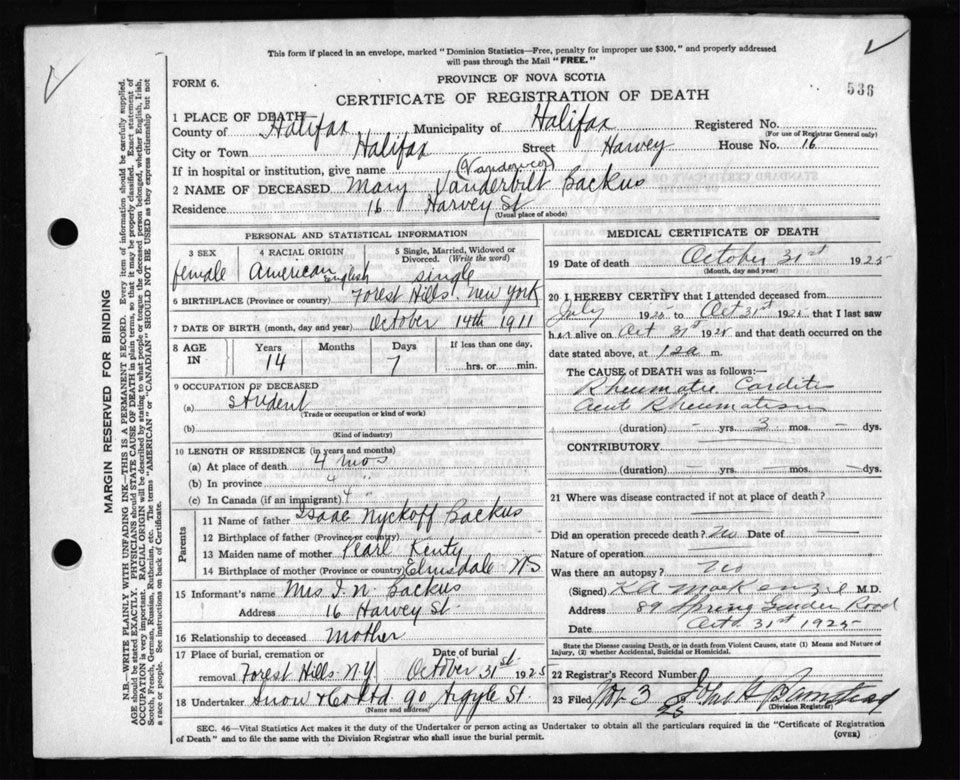 This form if placed in an envelope, marked "Dominion Statistics—Free, penalty for improper use $300," and properly addressed
will pass through the Mail "FREE."
FORM 6.
PROVINCE OF NOVA SCOTIA
536
CERTIFICATE OF REGISTRATION OF DEATH
1 PLACE OF DEATH
County of Halifax Municipality of Halifax Registered No.
(For use of Registrar General only)
City or Town Halifax Street Harvey House No. 16
If in hospital or institution, give name
2 NAME OF DECEASED Mary Vanderbilt Backus
Residence 16 Harvey St
(Usual place of abode)
PERSONAL AND STATISTICAL INFORMATION
3 SEX female
4 RACIAL ORIGIN American English
5 Single, Married, Widowed or Divorced. (Write the word) single
6 BIRTHPLACE (Province or country) Forest Hills. New York
7 DATE OF BIRTH (month, day and year) October 14th 1911
8 AGE IN Years 14 Months Days 7 If less than one day, hrs. or min.
9 OCCUPATION OF DECEASED
(a) student
(Trade or occupation or kind of work)
(b)
(Kind of industry)
10 LENGTH OF RESIDENCE (in years and months)
(a) At place of death 4 mos
(b) In province 4 "
(c) In Canada (if an immigrant) 4 "
Parents
11 Name of father Isaac Nyckoff Backus
12 Birthplace of father (Province or country)
13 Maiden name of mother Pearl Kenty
14 Birthplace of mother (Province or country) Elmsdale NS
15 Informant's name Mrs I. N. Backus
Address 16 Harvey St.
16 Relationship to deceased Mother
17 Place of burial, cremation or removal Forest Hills. N.Y
Date of burial October 31st 1925
18 Undertaker Snow & Co Ltd 90 Argyle St.
(Name and address)
MEDICAL CERTIFICATE OF DEATH
19 Date of death October 31st 1925
(Month, day and year)
20 I HEREBY CERTIFY that I attended deceased from
July 1925 to Oct 31st 1925 that I last saw
her alive on Oct 31st 1925 and that death occurred on the
date stated above, at 12a m.
The CAUSE of DEATH was as follows:
Rheumatic Carditis
Acute Rheumatism
(duration) — yrs. 3 mos. — dys.
CONTRIBUTORY
(duration) — yrs. — mos. — dys.
21 Where was disease contracted if not at place of death?
Did an operation precede death? No Date of —
Nature of operation
Was there an autopsy? No
(Signed) K A MacKenzie M.D.
Address 89 Spring Garden Road
Date Octo 31st 1925
State the Disease causing Death, or in death from Violent Causes, state (1) Means and Nature of
Injury, (2) whether Accidental, Suicidal or Homicidal.
22 Registrar's Record Number
23 Filed Nov 3 25 John H Barnstead
(Division Registrar)
SEC. 46—Vital Statistics Act makes it the duty of the Undertaker or person acting as Undertaker to obtain all the particulars required in the "Certificate of Registration
of Death" and to file the same with the Division Registrar who shall issue the burial permit.
(OVER)
MARGIN RESERVED FOR BINDING
N.B.—WRITE PLAINLY WITH UNFADING INK—THIS IS A PERMANENT RECORD. Every item of information should be carefully supplied.
AGE should be stated EXACTLY. PHYSICIANS should STATE CAUSE OF DEATH in plain terms, so that it may be properly classified. Exact statement of
OCCUPATION is very important. RACIAL ORIGIN will be described by stating to what people or tongue the deceased person belonged, whether English, Irish,
Scotch, French, German, Russian, Ruthenian, etc. The terms "AMERICAN" or "CANADIAN" SHOULD NOT BE USED as they express citizenship but not
a race or people. See instructions on back of Certificate.